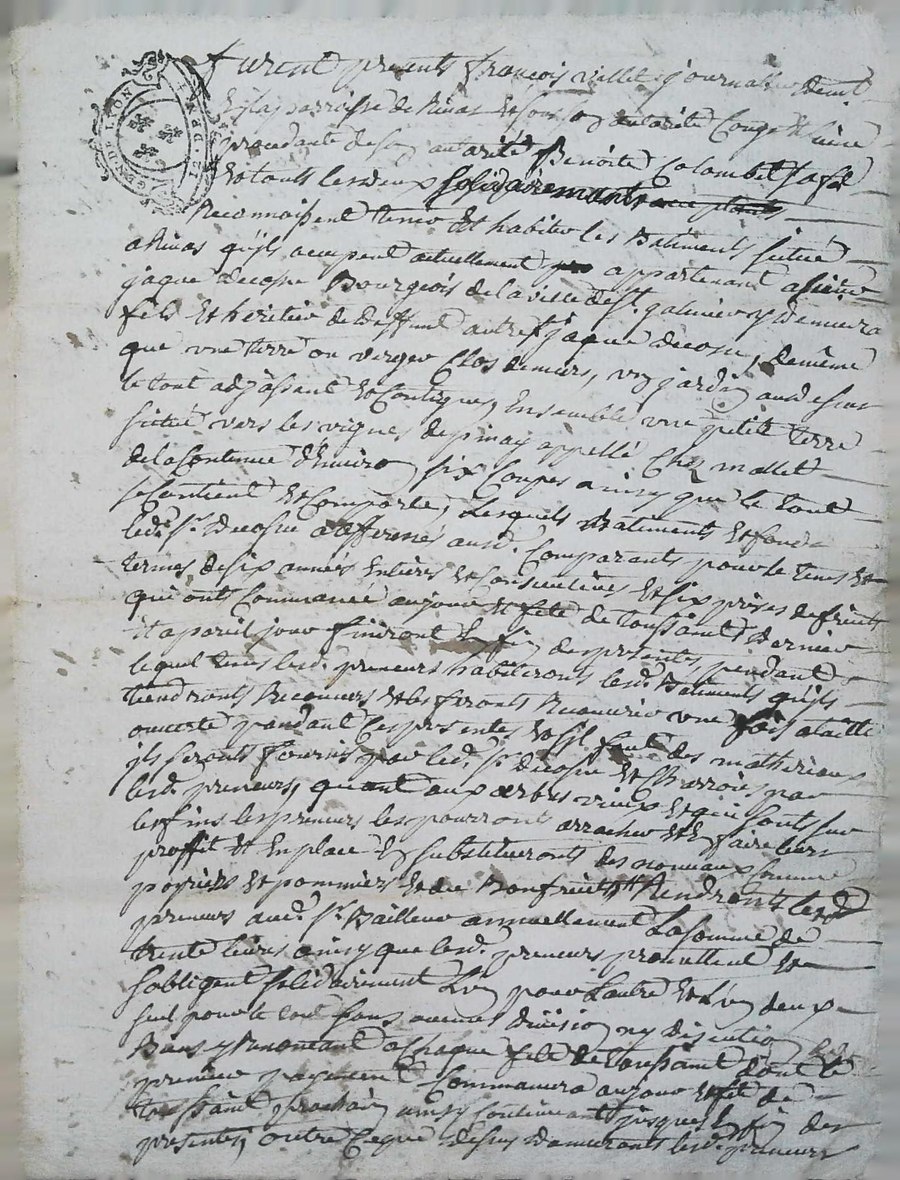 GEN. DE LYON
furent presents françois viallet journallier demt
En la parroisse de Rivas Et sous son autorité Conge Et licence
procedante de son autorité Benoite Colombet sa fe
Et touts les deux solidairemant
Reconnoissent tenir Et habiter les Batiments situé
a Rivas qu'ils acupent actuellement appartenant a sieur
jaque decosne Bourgeois de la ville de St. galmier y demeurant
fils Et heritier de deffunt autre sr jaque decosne, de même
que une terre ou verger Clos de murs, un jardin audessus
le tout adjassent Et Contigue, Ensemble une petite terre
situé vers les vignes de appellé Chez mallet
de la Contenue d'Enuiron six Coupes ainsy que le tout
se Contient Et Comporte, Lesquels Batiments Et fond
led. Sr. decosne a affermés aud. Comparants pour le tems Et
termes de six années Entières Et Consecutives Et six prises de fruits
qui ont Commancé au jour Et fete de Toussaint dernier
Et a pareil jour finiront la fin des presentes, pendant
lequel tems lesd. preneurs habiteront lesd. Batiments qu'ils
tiendront Recouvers Et les feront Recouvrir une fois a taille
ouverte pendant Ces presentes Et sil faut des matheriaux
ils seront fournis par led. Sr. decosne Et Charroiés par
lesd. preneurs, quant aux arbres vieux Et qui sont sur
les fins les preneurs les pourront arracher Et En faire leurs
proffit Et En place En substitueront des nouveaux Comme
poyriers Et pommiers Et de Bon fruit Rendront lesd
preneurs aud. Sr. Bailleur annuellement La somme de
trente livres ainsy que lesd. preneurs promettent Et
sobligent solidairement L'un pour Lautre Et L'un deux
seul pour le tout sans aucune division ny discution
Biens y Renonceant a Chaque fete de Toussaint dont le
premier payement Commancera au jour Et fete de
toussaint prochain ainsy Continuant jusques La fin des
presentes, outre Ceque dessus demeurants lesd. preneurs